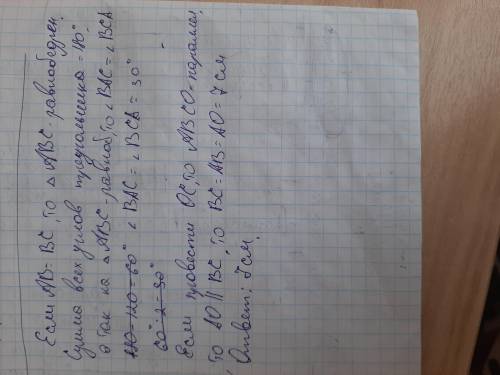 Если AB = BC, то △ ABC - равнобедрен.
Сумма всех углов треугольника = 180°
а так ка △ ABC - равноб, то ∠ BAC = ∠ BCA
180 - 120 = 60° ∠ BAC = ∠ BCA = 30°
60 : 2 = 30°
Если провести OC, то ABCO - паралел.
то AO || BC, то BC = AB = AO = 7 см
Ответ: 7 см.